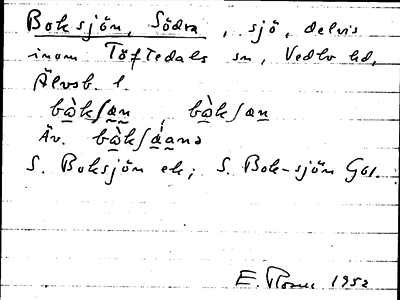 Boksjön, Södra, sjö, delvis
inom Töftedals sn, Vedbo hd,
Älvsb. l.
bὰ̱kʃæ̱n̰, bὰ̱kʃæn̰
Äv. bὰ̱kʃá̱a̱nə
S. Boksjön ek; S. Bok-sjön GS1.
E. 1952